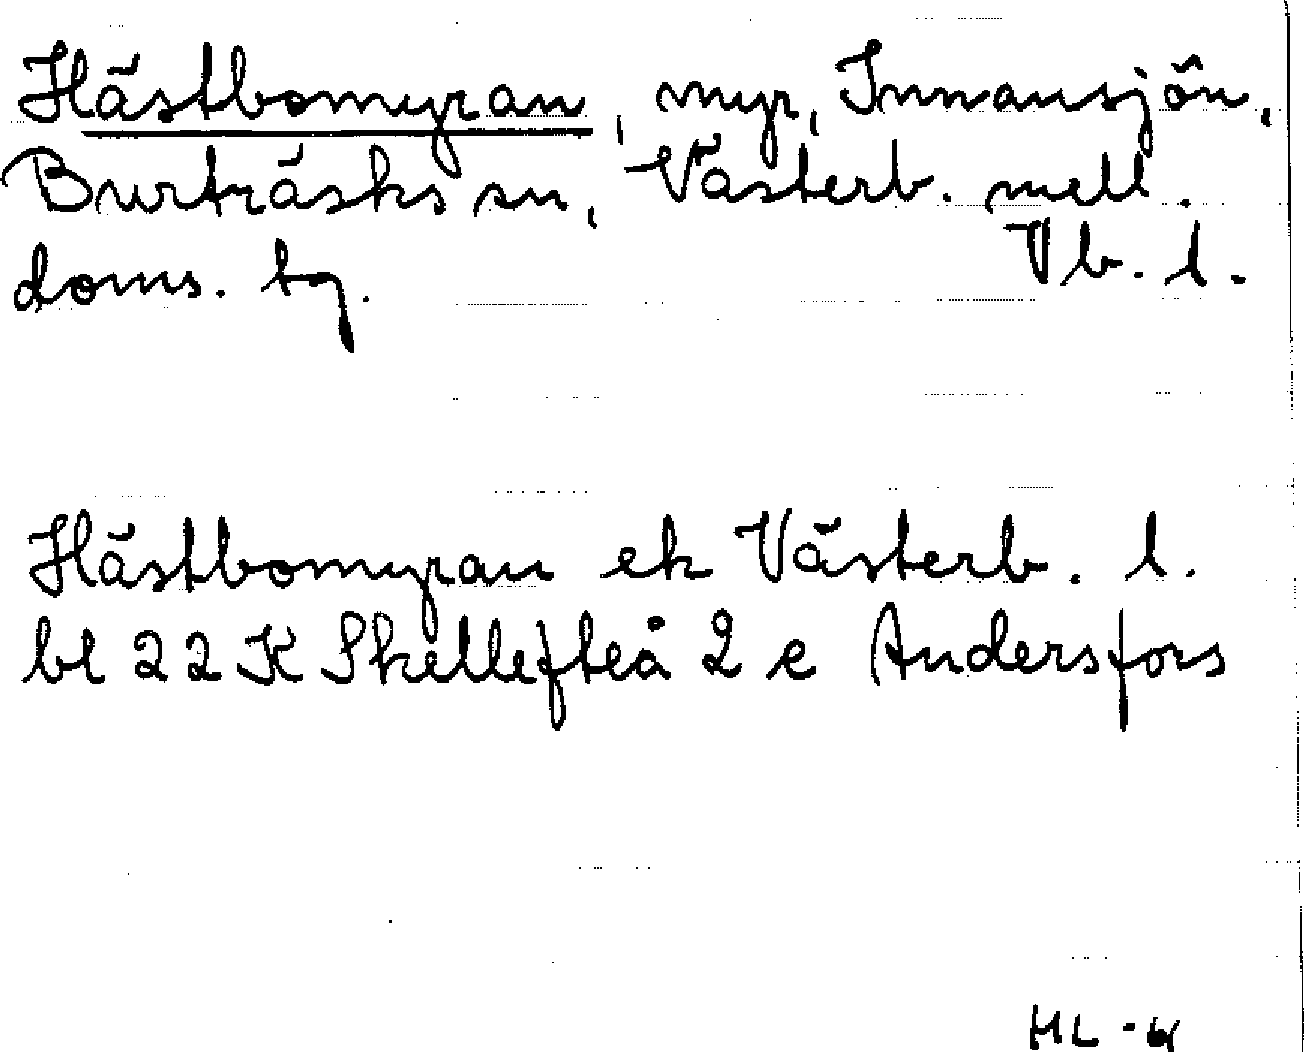 Hästbomyran, myr, Innansjön,
Burträsks sn, Västerb. mell.
doms. tg. Vb. l.
Hästbomyran ek Västerb. l.
bl 22 K Skellefteå 2 e Andersfors
HL